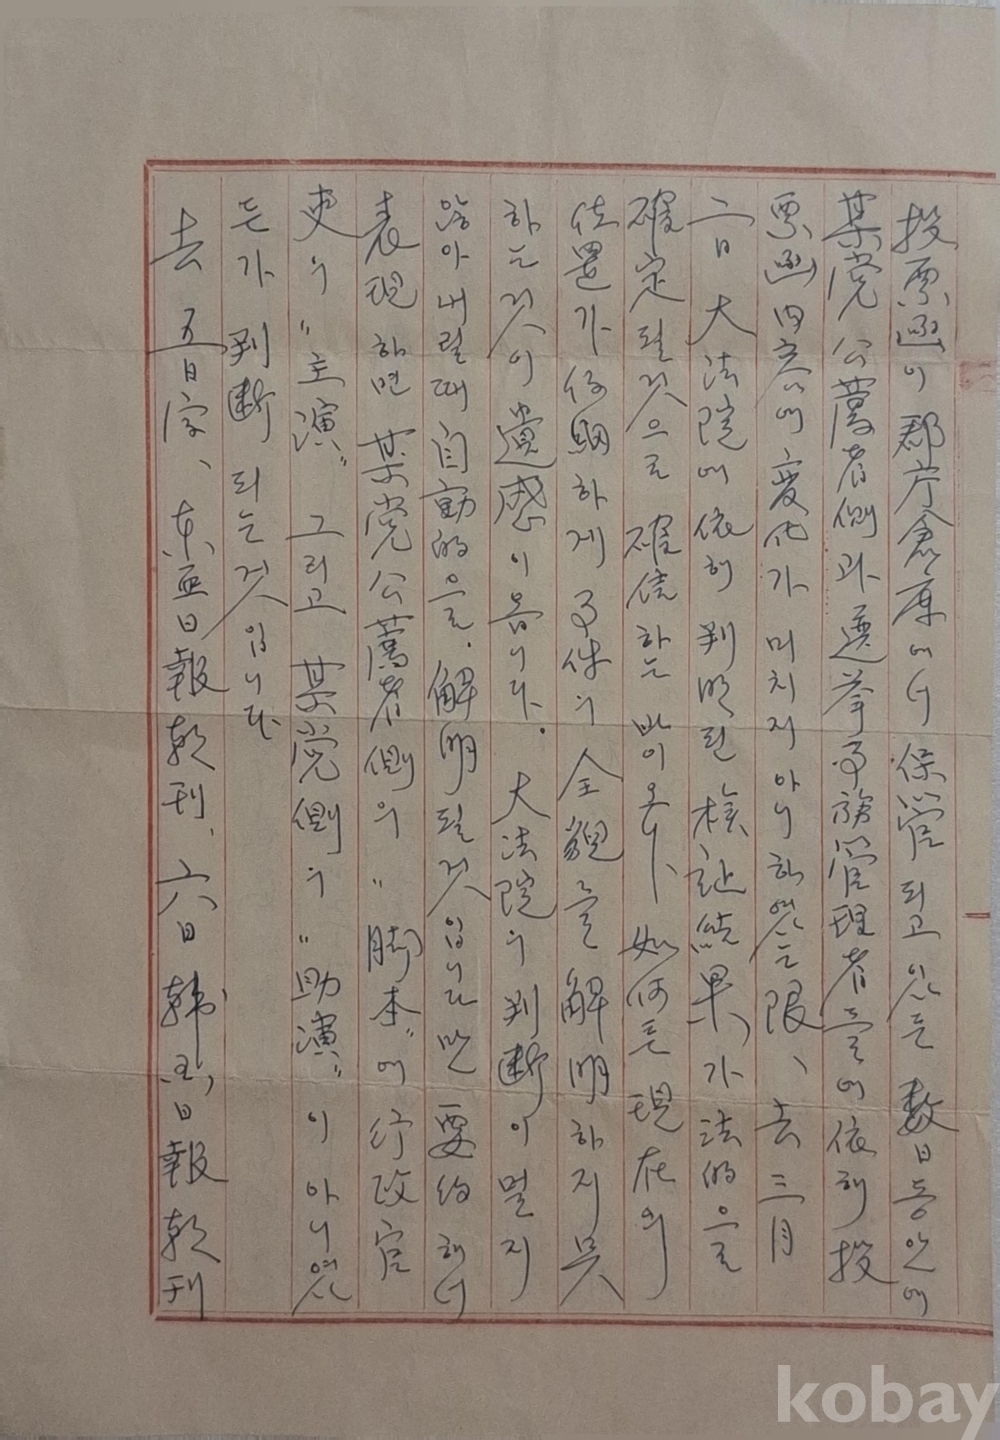 投票函이 郡庁倉庫에서 保管되고 있는 数日동안에
某党公薦者側과 選挙事務管理者들에 依해 投
票函内容에 変化가 미치지 아니하였는限、去三月
二日 大法院에 依해 判明된 検証結果가 法的으로
確定될것으로 確信하는 바이오나 如何튼 現在의
位置가 仔細하게 事件의 全貌를 解明하지 못
하는것이 遺感이옵니다. 大法院의 判断이 멀지
않아 내릴때 自動的으로 解明될것입니다만 要約해서
表現하면 某党公薦者側의 "脚本"에 行政官
吏의 "主演" 그리고 某党側의 "助演"이 아니였
든가 判断되는것입니다
去 五日字、東亜日報朝刊、六日 韓国日報朝刊
kobay